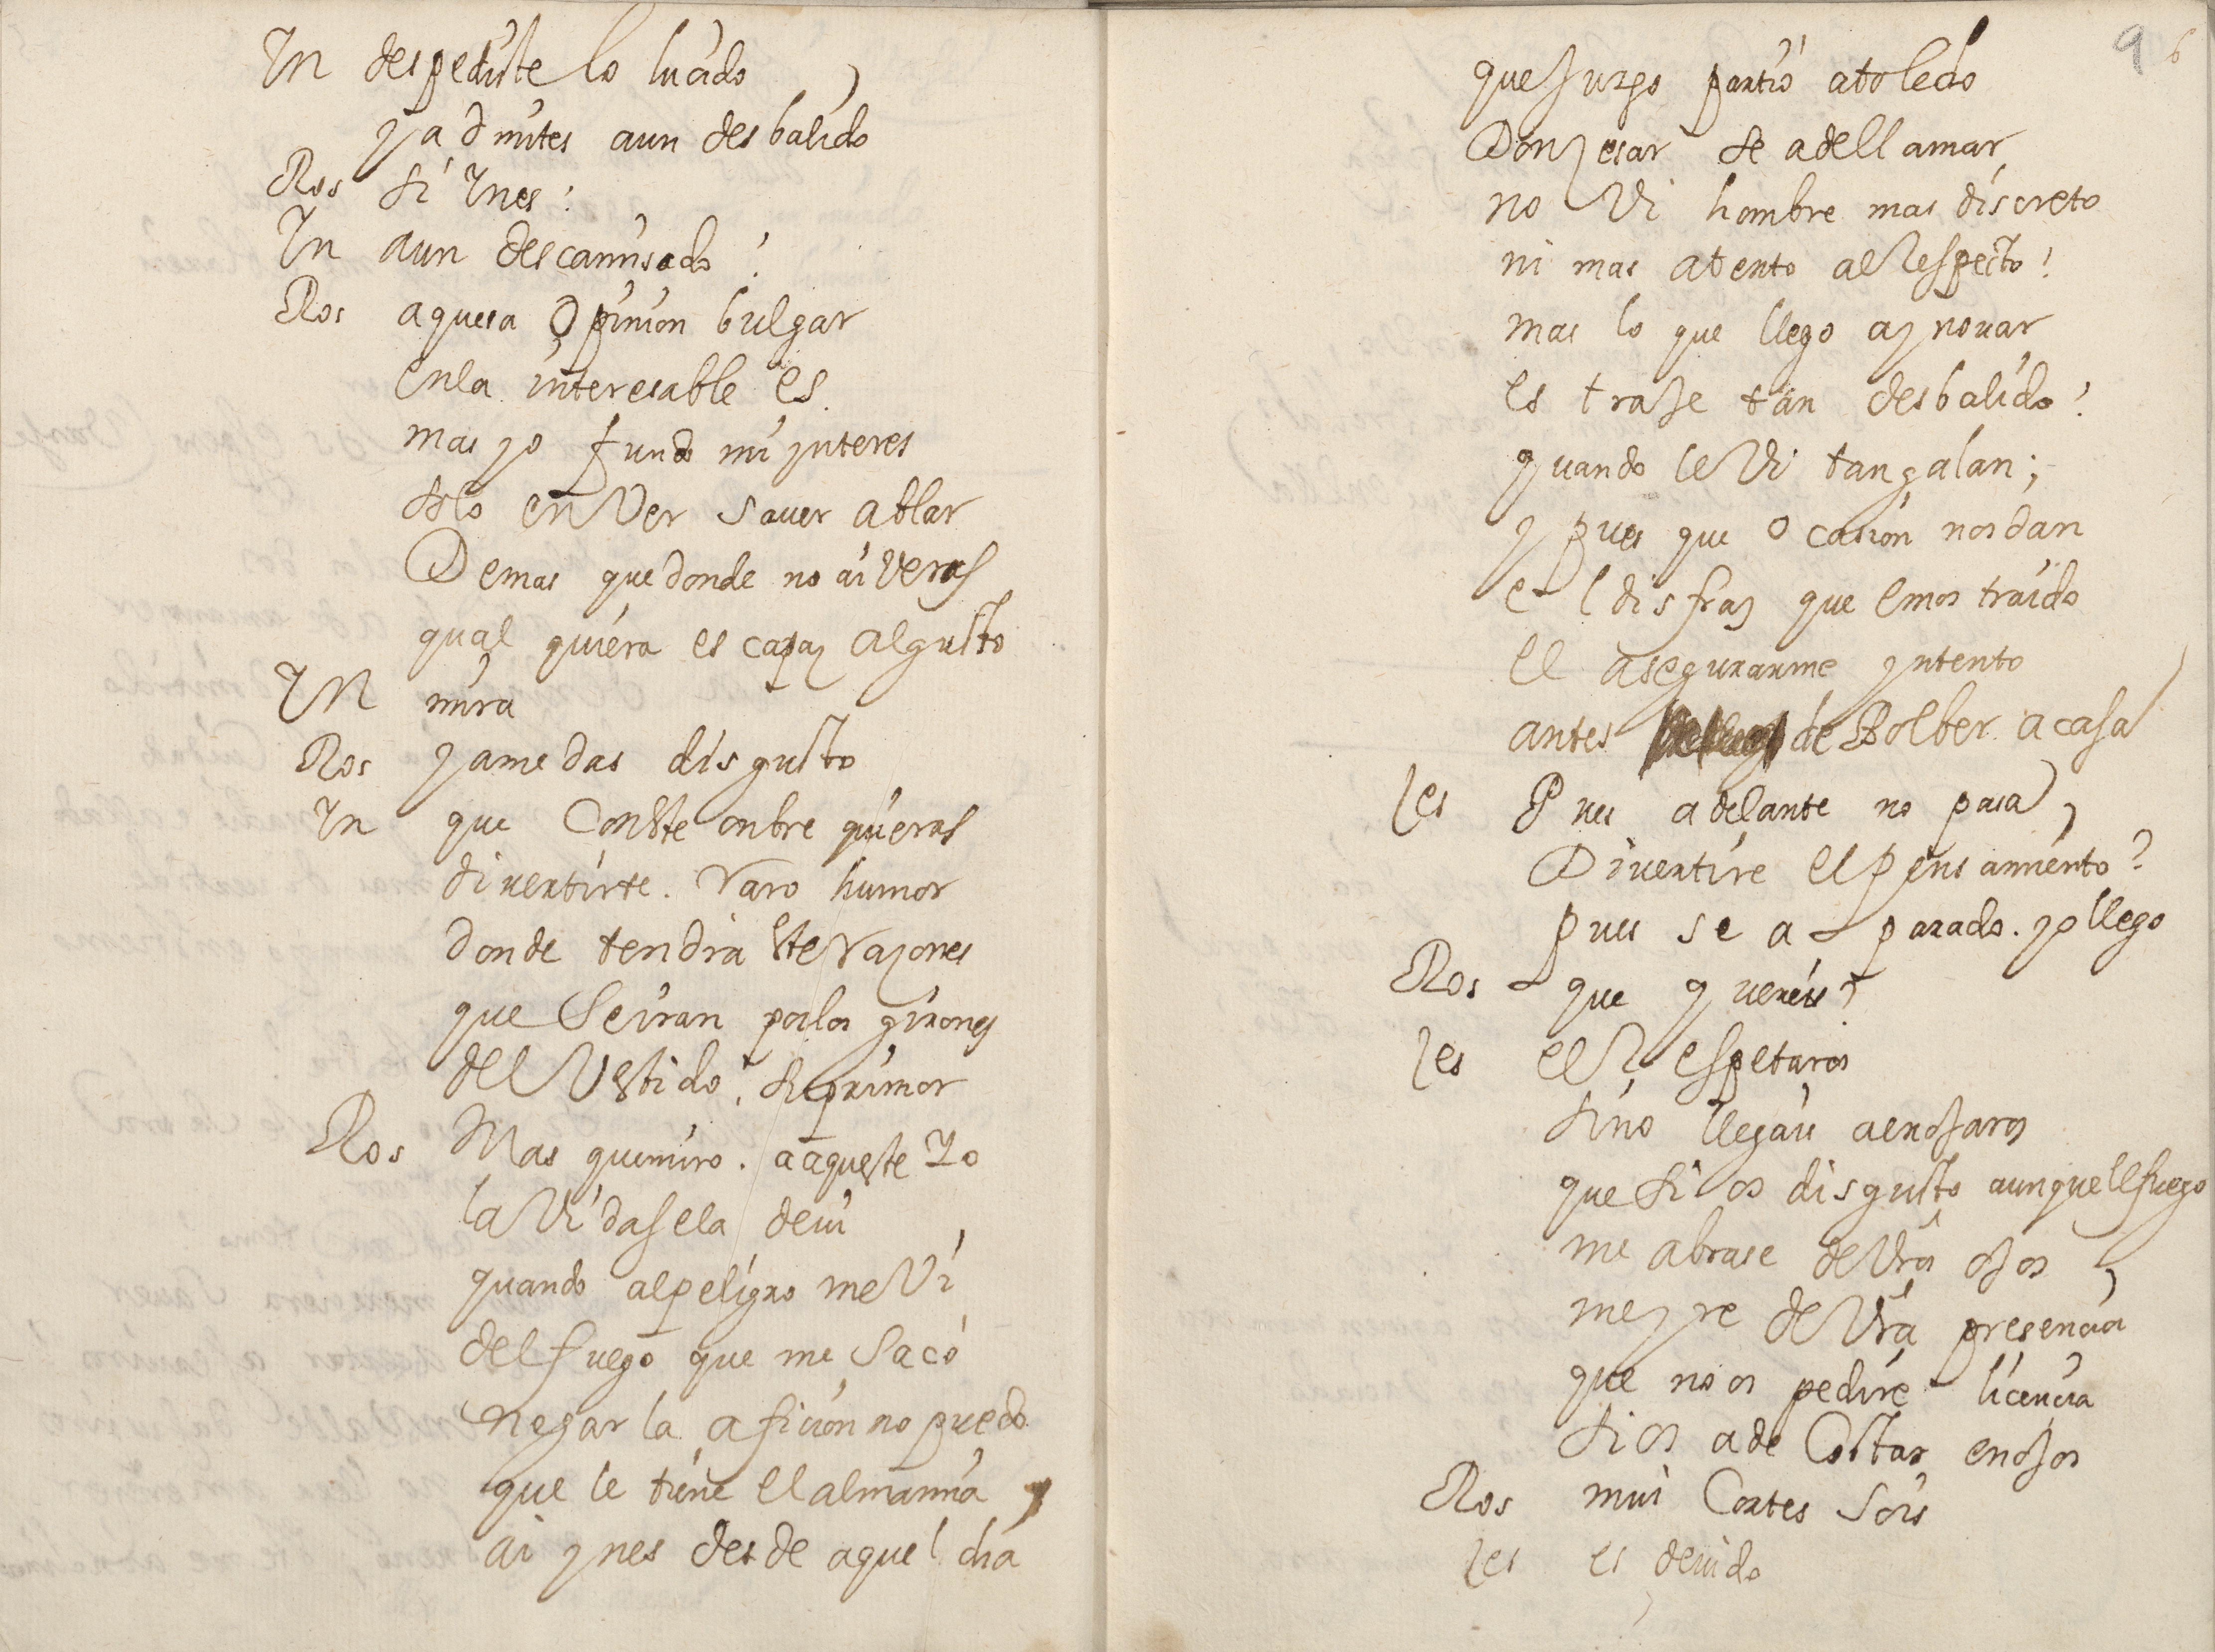 In despediste lo lucido
y admites aun desbalido
Ros si Ynes!
In aun descamisado!
Ros aquesa Opinion bulgar
enla interesable es
mas yo fundo mi ynteres
solo en Ver saver ablar
Demas que donde no ai veras
qual quiera es capaz al gusto
In mira
Ros ya me das disgusto
In que Con este onbre quieras
divertirte. raro humor
donde tendra este razones
que se iran por los girones
del Vestido, si primor
Ros Mas que miro. a aqueste Yo
la Vida se la devi
quando al peligro me Vi
del fuego que me Saco
negar la aficion no puedo
que le tiene el alma mia
ai ynes desde aquel dia
96
que Jurgo partio a toledo
Don zesar se a de llamar
no Vi hombre mas discreto
ni mas atento al respecto!
mas lo que llego a ynovar
es traJe tan desbalido!
quando le Vi tan galan;
y pues que ocasion nos dan
el disfraz que emos traido
el asegurarme yntento
antes de Bolber a casa
zes Pues adelante no pasa
Divertire el pensamiento?
pues se a parado. yo llego
Ros que quereis
zes el Respetaros
sino llegais a enoJaros
que si os disgusto aunque el fuego
me abrase de Vros oJos
me yre de Vra presencia
que no os pedire licencia
si os a de Costar enoJos
Ros mui Cortes Sois
zes es devido